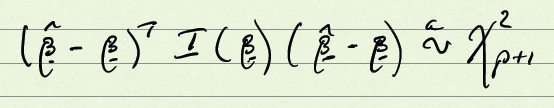 (β̂ - β)ᵀ I(β) (β̂ - β) ~ᵃ χ²ₚ₊₁